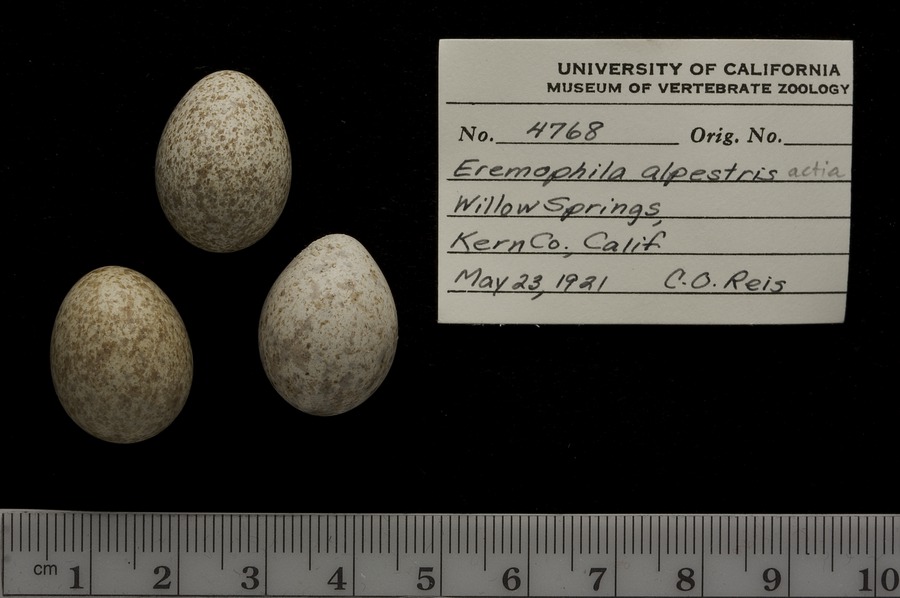 UNIVERSITY OF CALIFORNIA
MUSEUM OF VERTEBRATE ZOOLOGY
No. 4768 Orig. No.
Eremophila alpestris actia
Willow Springs,
Kern Co., Calif
May 23, 1921 C.O. Reis
cm 1 2 3 4 5 6 7 8 9 10